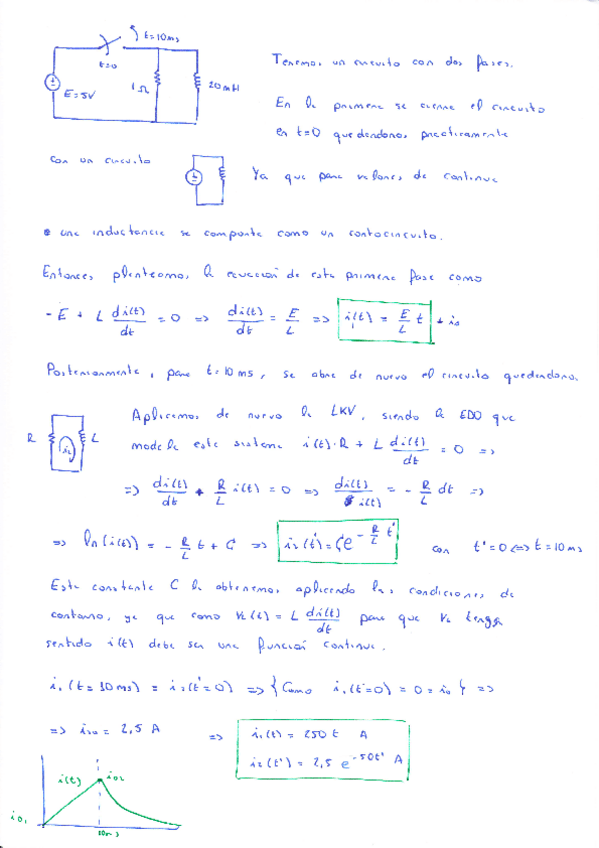 t=10ms
t=0
E=5V
1Ω
20mH
Tenemos un circuito con dos fases.
En la primera se cierra el circuito
en t=0 quedandonos practicamente
con un circuito
Ya que para valores de continua
una inductancia se comporta como un cortocircuito.
Entonces planteamos la ecuación de esta primera fase como
-E + L di(t)/dt = 0 => di(t)/dt = E/L => i₁(t) = E/L t + i₀
Posteriormente, para t=10ms, se abre de nuevo el circuito quedandonos
R
L
Aplicamos de nuevo la LKV, siendo la EDO que
modela este sistema i(t)·R + L di(t)/dt = 0 =>
=> di(t)/dt + R/L i(t) = 0 => di(t)/i(t) = - R/L dt =>
=> ln(i(t)) = - R/L t + C => i₂(t') = C e^(-R/L t') con t'=0 <=> t=10ms
Esta constante C la obtenemos aplicando las condiciones de
contorno, ya que como VL(t) = L di(t)/dt para que VL tenga
sentido i(t) debe ser una función continua.
i₁(t=10ms) = i₂(t'=0) => { Como i₁(t=0) = 0 = i₀ } =>
=> i₂₀ = 2,5 A => i₁(t) = 250 t A
i₂(t') = 2,5 e^(-50t') A
i(t)
i₀₂
i₀₁
10ms